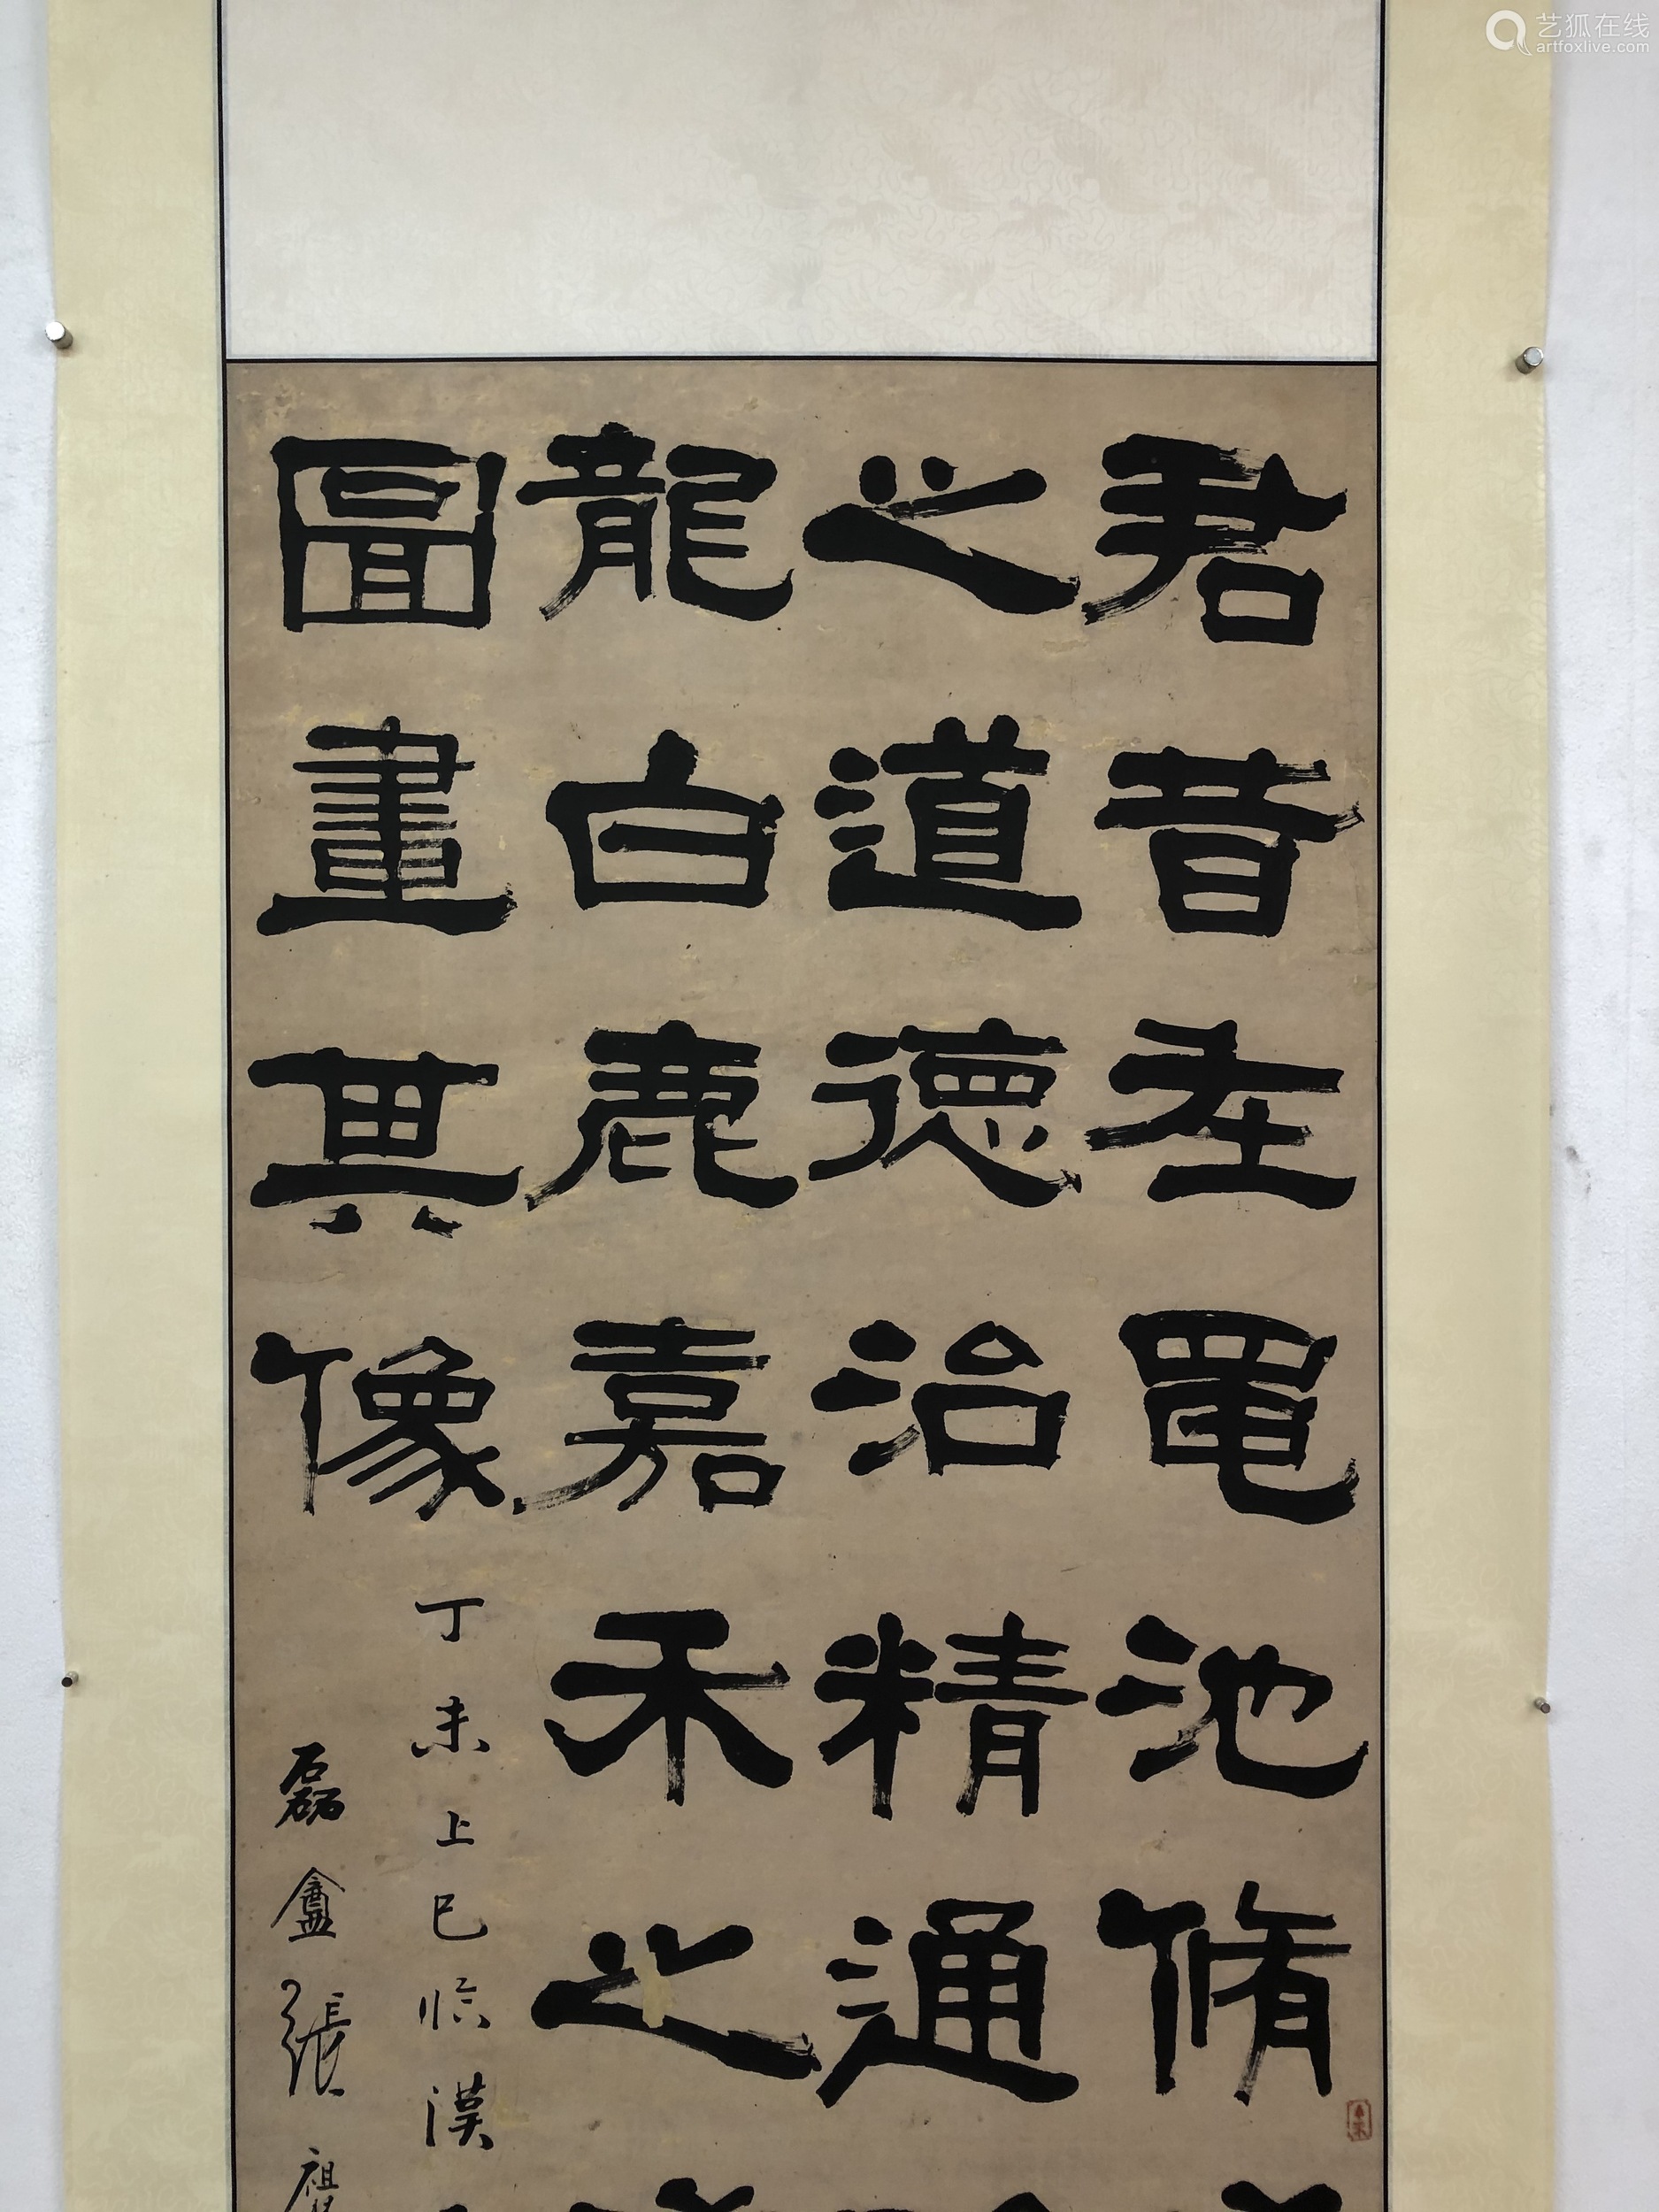 君昔在黽池脩
之道德治精通
龍白鹿嘉禾之
圖畫其像
丁未上巳臨漢
磊盦張祖
艺狐在线
artfoxlive.com